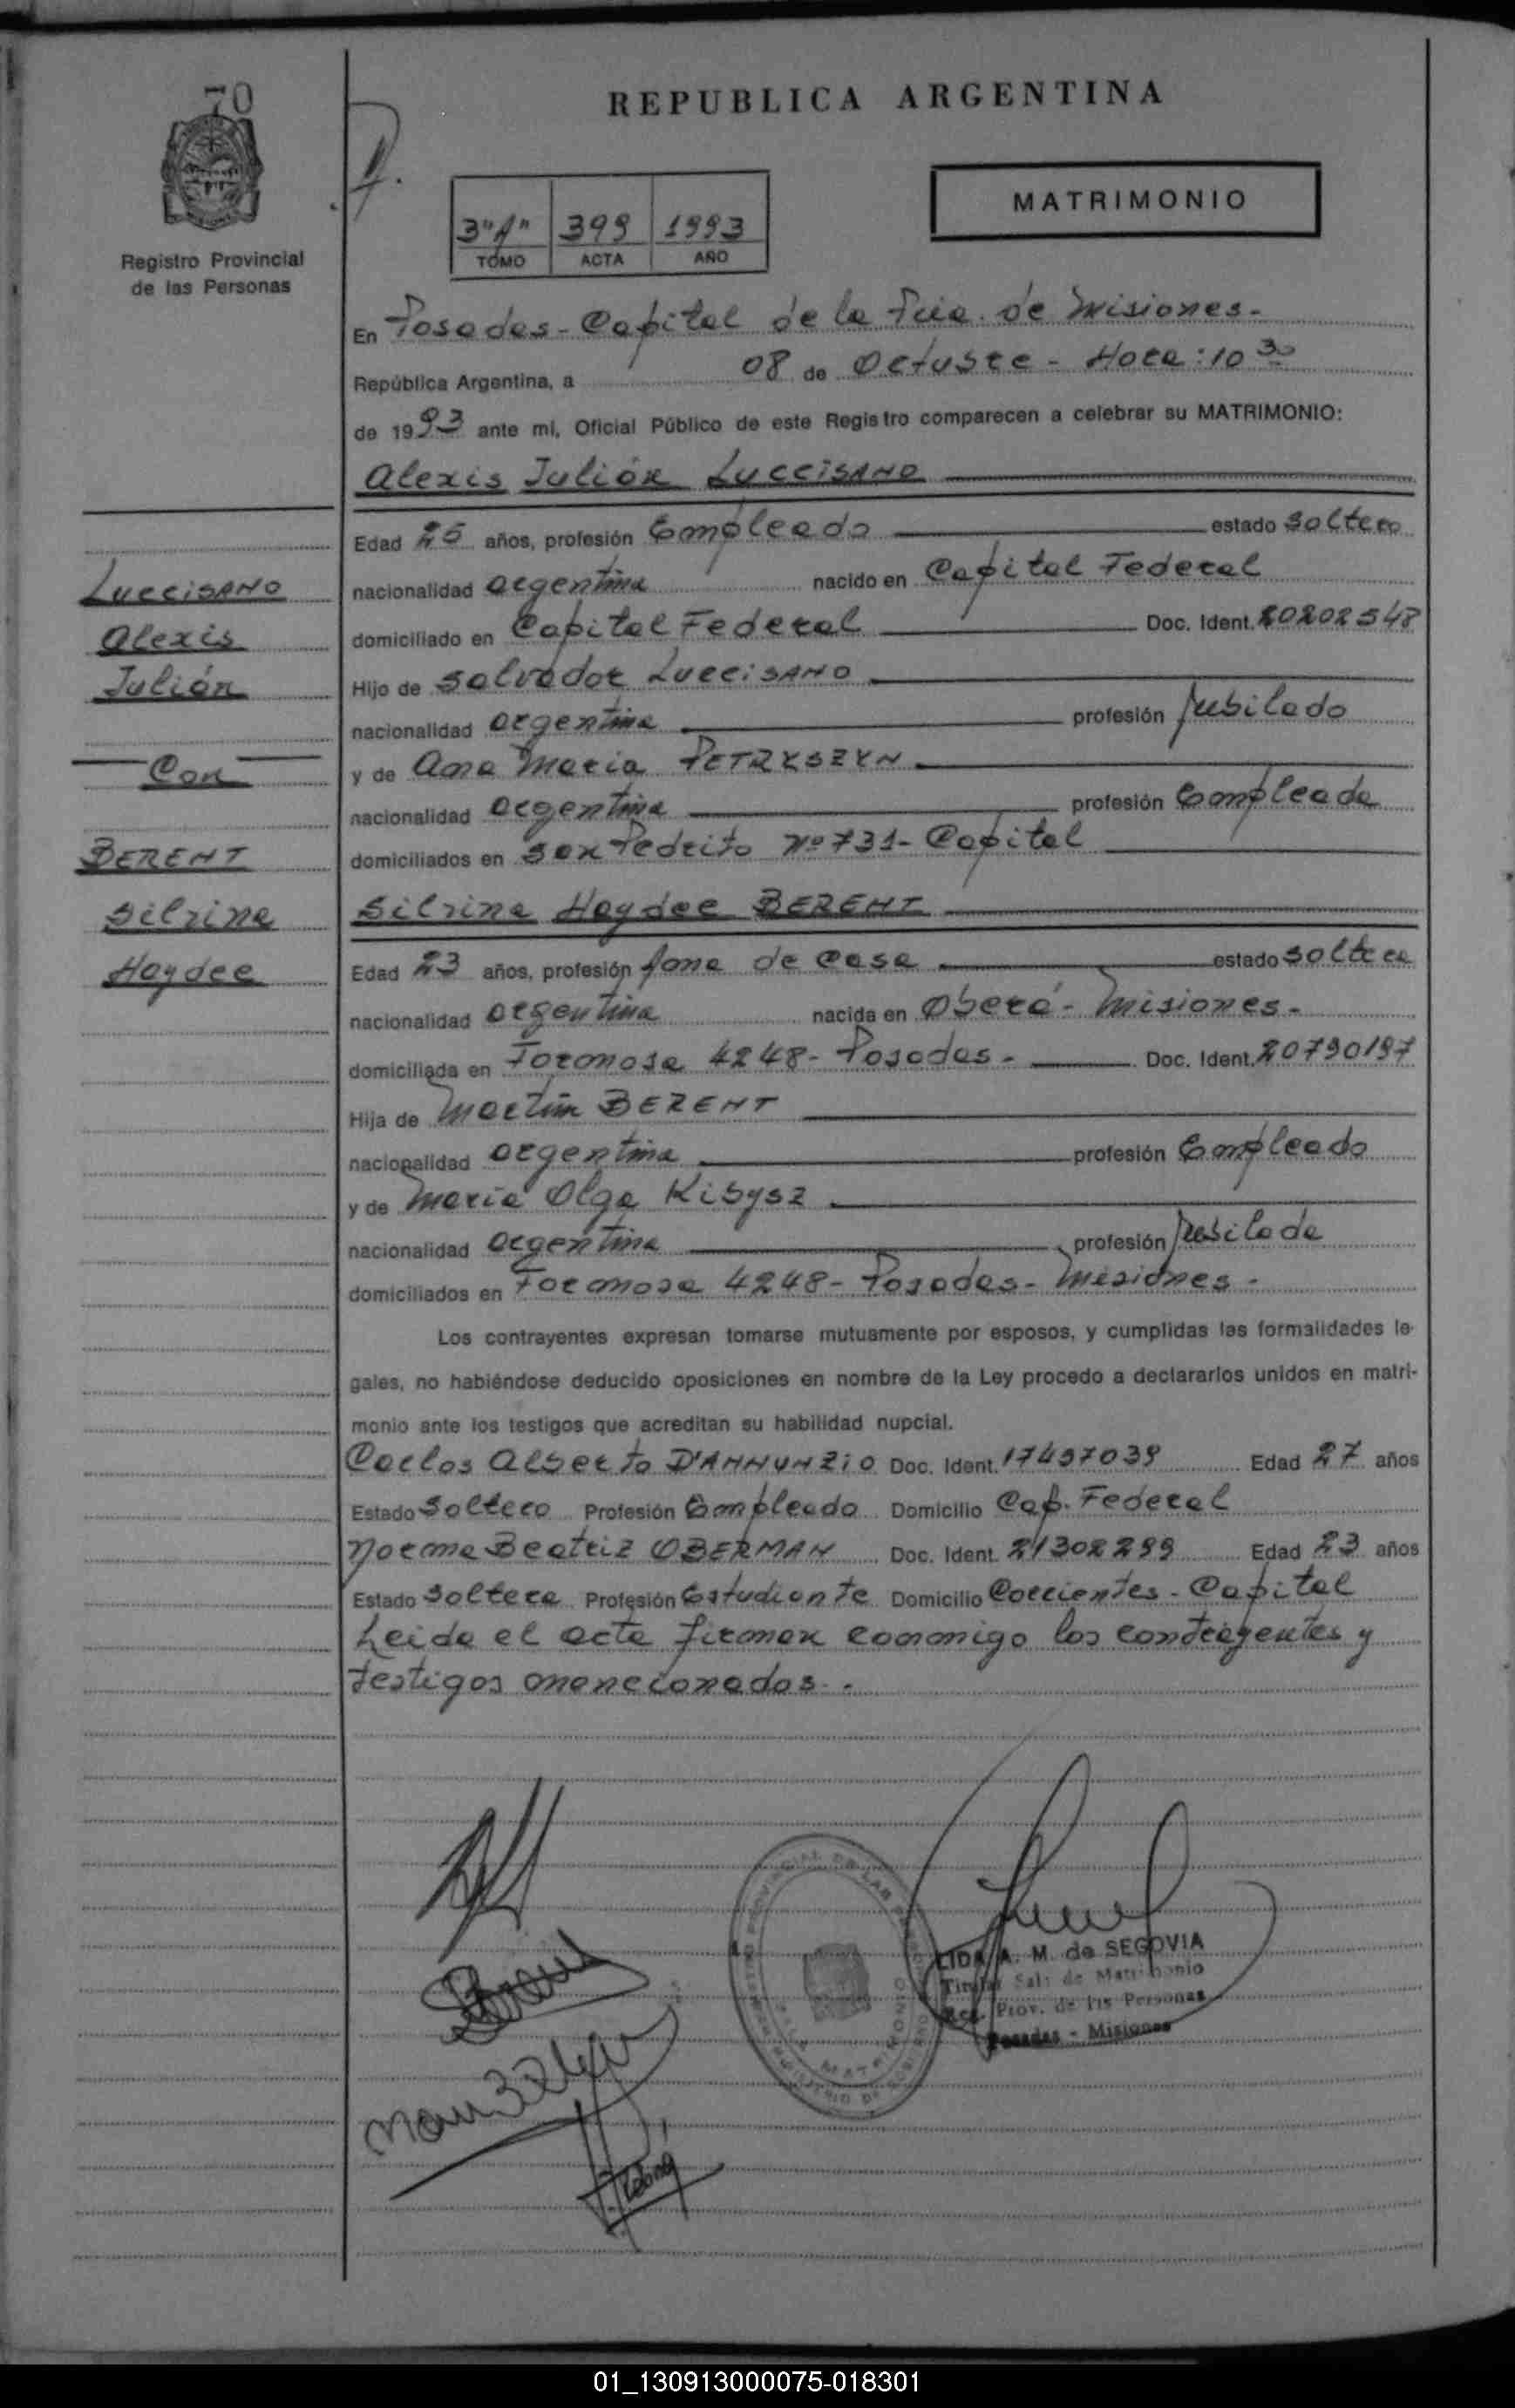 70
REPUBLICA ARGENTINA
MATRIMONIO
3"A" 399 1993
TOMO ACTA AÑO
Registro Provincial
de las Personas
En Posadas - Capital de la Pcia. de Misiones.-
República Argentina, a 08 de Octubre - Hora: 10 30
de 1993 ante mí, Oficial Público de este Registro comparecen a celebrar su MATRIMONIO:
Alexis Julián LUCCISANO
Edad 25 años, profesión Empleado estado Soltero
nacionalidad argentina nacido en Capital Federal
domiciliado en Capital Federal Doc. Ident. 20202548
Hijo de Salvador LUCCISANO
nacionalidad argentina profesión Jubilado
y de Ana María PETRYSZYN
nacionalidad argentina profesión Empleada
domiciliados en San Pedrito Nº 731 - Capital
Silvina Haydee BERENT
Edad 23 años, profesión Ama de Casa estado Soltera
nacionalidad argentina nacida en Oberá - Misiones.-
domiciliada en Formosa 4248 - Posadas.- Doc. Ident. 20790197
Hija de Martín BERENT
nacionalidad argentina profesión Empleado
y de María Olga Kisysz
nacionalidad argentina profesión Jubilada
domiciliados en Formosa 4248 - Posadas - Misiones.-
Los contrayentes expresan tomarse mutuamente por esposos, y cumplidas las formalidades le-
gales, no habiéndose deducido oposiciones en nombre de la Ley procedo a declararlos unidos en matri-
monio ante los testigos que acreditan su habilidad nupcial.
Carlos Alberto D'ANNUNZIO Doc. Ident. 17497039 Edad 27 años
Estado Soltero Profesión Empleado Domicilio Cap. Federal
Norma Beatriz OBERMAN Doc. Ident. 21302299 Edad 23 años
Estado Soltera Profesión Estudiante Domicilio Corrientes - Capital
Leida el acta firman conmigo los contrayentes y
testigos mencionados.-
LUCCISANO
Alexis
Julián
Con
BERENT
Silvina
Haydee
LIDA A. M. de SEGOVIA
Titular Sala de Matrimonio
Reg. Prov. de las Personas
Posadas - Misiones
01_130913000075-018301